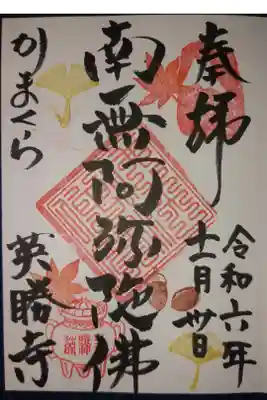 奉拝
令和六年
十一月廿日
南無阿弥陀佛
かまくら
英勝寺